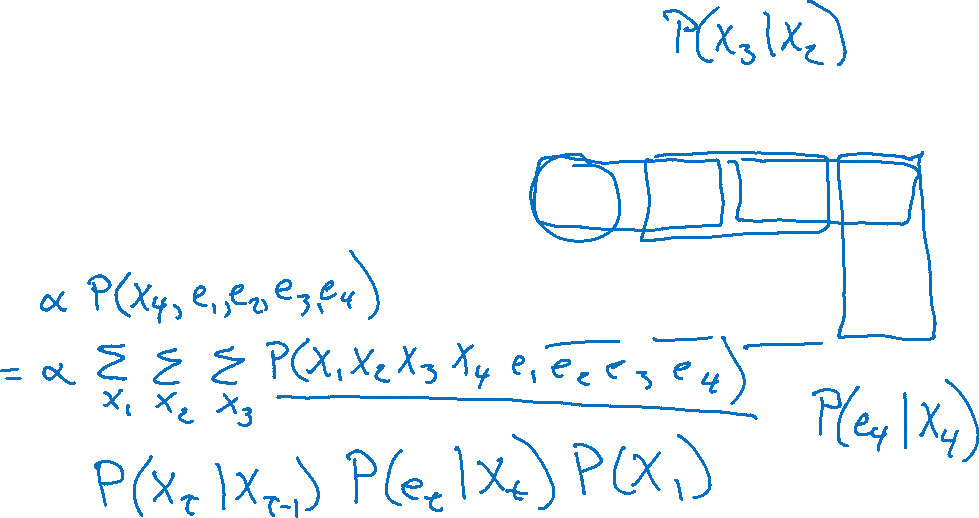 P(X₃|X₂)
∝ P(X₄, e₁, e₂, e₃, e₄)
= ∝ Σ Σ Σ P(X₁ X₂ X₃ X₄ e₁ e₂ e₃ e₄)
X₁ X₂ X₃
P(e₄|X₄)
P(X_t|X_{t-1}) P(e_t|X_t) P(X₁)